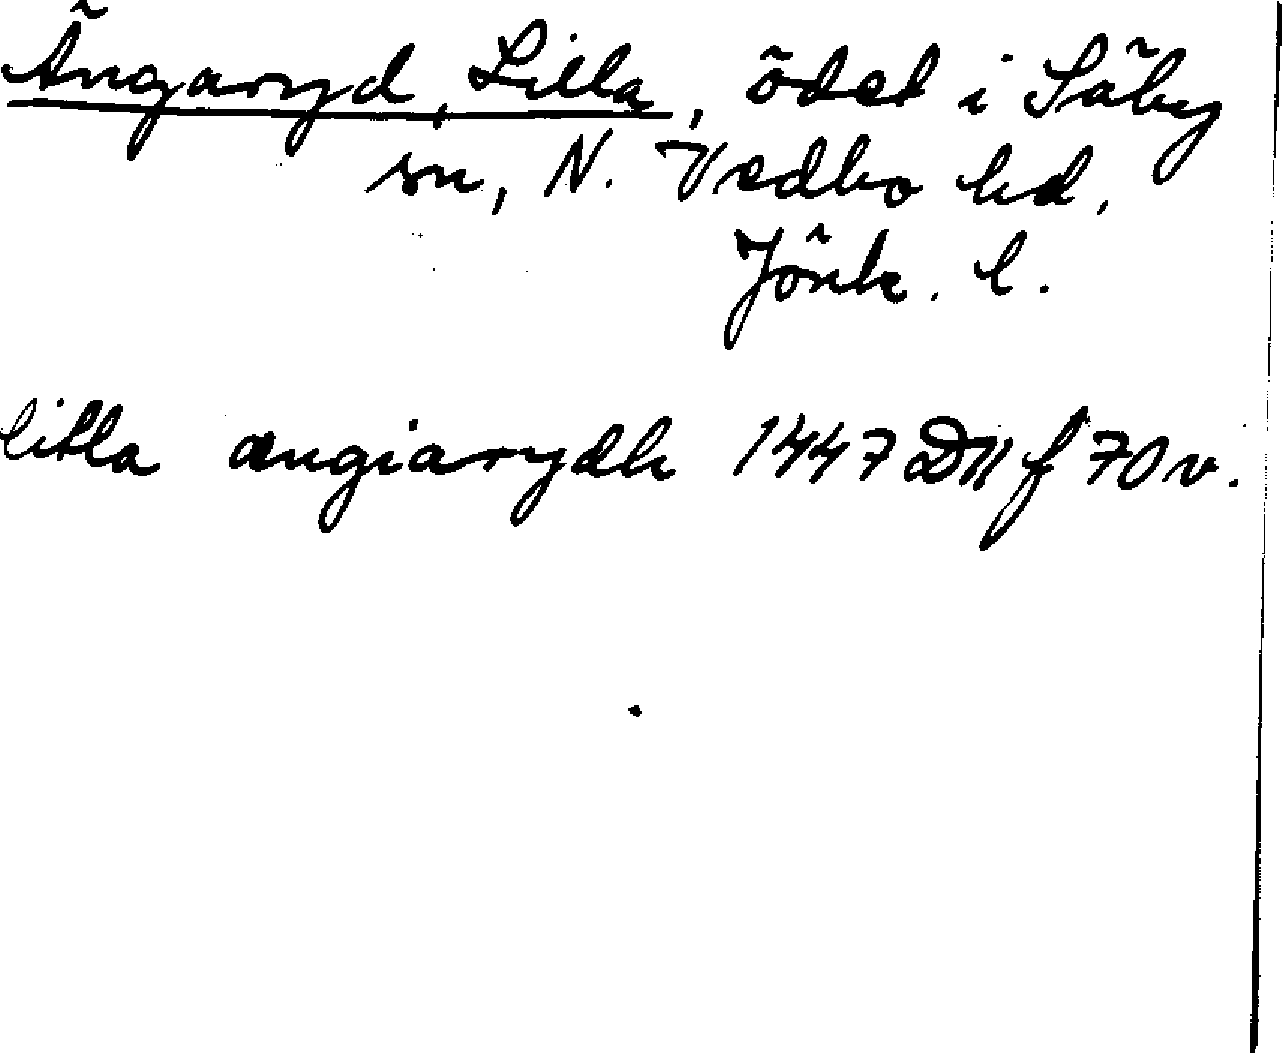 Ängaryd, Lilla, ödet i Säby
sn, N. Vedbo hd,
Jönk. l.
litla ængiarydh 1447 DII f 70 v.